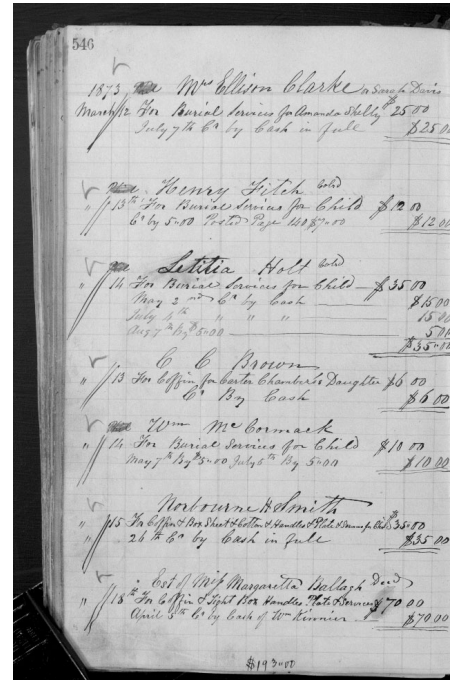 546
1873 Mrs Ellison Clarke or Sarah Davis
March 12 For Burial Services for Amanda Shelby $25 00
July 7th Cr by Cash in full $25 00
Henry Fitch Cold
" 13th For Burial Services for Child $12 00
Cr by 5=00 Posted Page 140 $7=00 $12 00
Letitia Holt Cold
" 14 For Burial Services for Child $35 00
May 2nd Cr by Cash $15 00
July 4th " " " 15 00
Aug 7th By $5=00 5 00
$35=00
C C Brown
" 13 For Coffin for Carter Chambers Daughter $6 00
Cr By Cash $6 00
Wm McCormack
" 14 For Burial Services for Child $10 00
May 7th By $5=00 July 5th By 5=00 $10 00
Norbourne H Smith
" 15 For Coffin & Box Sheet & Cotton & Handles & Plate & for $35=00
26th Cr by Cash in full $35 00
Est of Miss Margaretta Ballagh Decd
" 18th For Coffin & Tight Box Handles Plate & Services $70 00
April 5th Cr by Cash of Wm Kinnier $70 00
$193=00